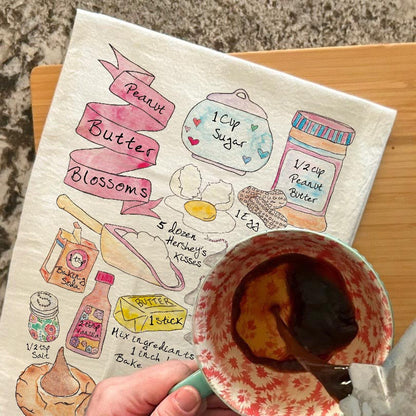 Peanut
Butter
Blossoms
1 Cup
Sugar
1/2 Cup
Peanut
Butter
1 Egg
5 dozen
Hershey's
Kisses
1 tsp
Baking
Soda
BUTTER
1 stick
1/2 tsp
Salt
Mix ingredients
1 inch
Bake